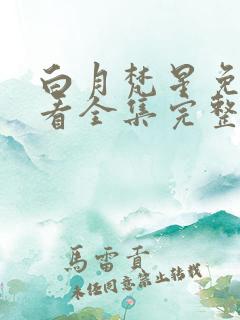 白月梵星免
看全集完整
馬雷貢
未经同意禁止转载